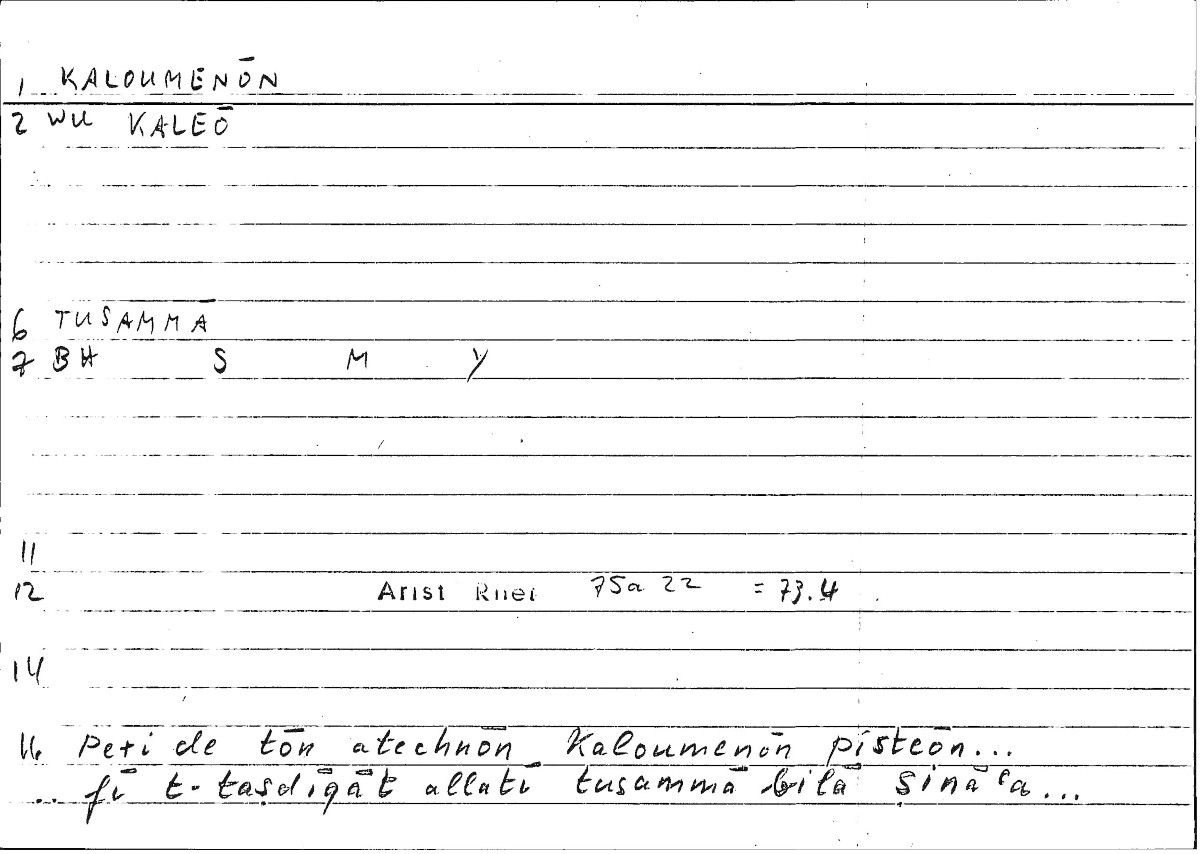 1 KALOUMENŌN
2 WU KALEŌ
6 TUSAMMĀ
7 BH S M Y
11
12 Arist Rhet 75a 22 = 73.4
14
16 Peri de tōn atechnōn Kaloumenōn pisteōn...
.. fī t-taṣdīqāt allatī tusammā bilā ṣināʿa...